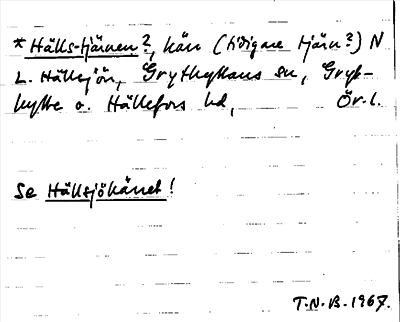 *Hälls-tjärnen?, kärr (tidigare tjärn?) N
L. Hällsjön, Grythyttans sn, Gryt-
hytte o. Hällefors hd, Ör. l.
Se Hällsjökärret!
T.N.B. 1967.